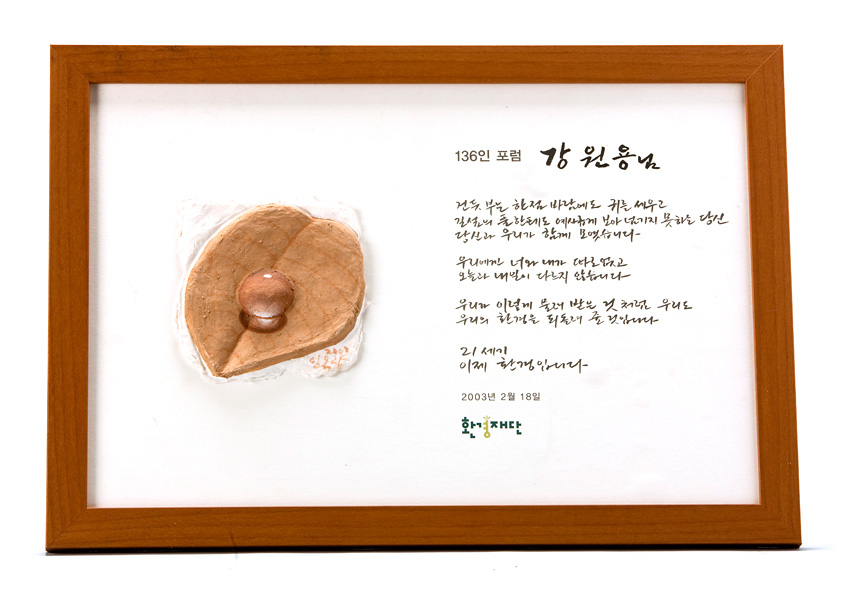 136인 포럼 강원용님
건듯 부는 한점 바람에도 귀를 세우고
길섶의 풀 한데도 예사롭게 보아 넘기지 못하는 당신
당신과 우리가 함께 모였습니다
우리에겐 너와 내가 따로없고
오늘과 내일이 다르지 않습니다
우리가 이렇게 물려 받은 것 처럼 우리도
우리의 환경을 되돌려 줄 것입니다
21세기
이제 환경입니다
2003년 2월 18일
환경재단
2003